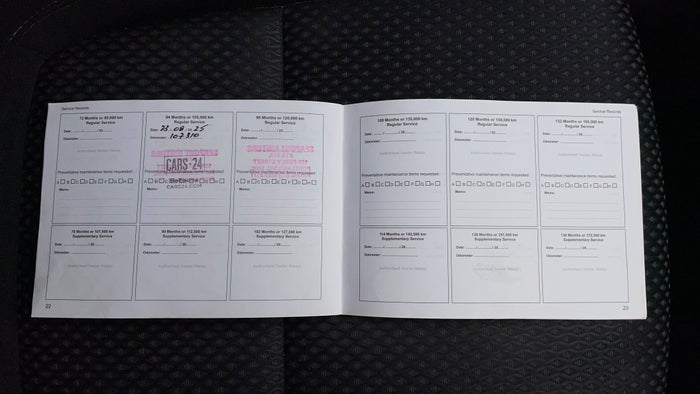 Service Records
72 Months or 90,000 km
Regular Service
Date: ......./......./ 20.......
Odometer:
Preventative maintenance items requested:
A B C D E F G H
Memo:
84 Months or 105,000 km
Regular Service
Date: 23 / 08 / 2025
Odometer: 107310
CARS24
CARS24.COM
Preventative maintenance items requested:
Memo:
96 Months or 120,000 km
Regular Service
Date: ......./......./ 20.......
Odometer:
Preventative maintenance items requested:
A B C D E F G H
Memo:
78 Months or 97,500 km
Supplementary Service
Date: ......./......./ 20.......
Odometer:
Authorised Dealer Stamp
90 Months or 112,500 km
Supplementary Service
Date: ......./......./ 20.......
Odometer:
Authorised Dealer Stamp
102 Months or 127,500 km
Supplementary Service
Date: ......./......./ 20.......
Odometer:
Authorised Dealer Stamp
22
Service Records
108 Months or 135,000 km
Regular Service
Date: ......./......./ 20.......
Odometer:
Authorised Dealer Stamp
Preventative maintenance items requested:
A B C D E F G H
Memo:
120 Months or 150,000 km
Regular Service
Date: ......./......./ 20.......
Odometer:
Authorised Dealer Stamp
Preventative maintenance items requested:
A B C D E F G H
Memo:
132 Months or 165,000 km
Regular Service
Date: ......./......./ 20.......
Odometer:
Authorised Dealer Stamp
Preventative maintenance items requested:
A B C D E F G H
Memo:
114 Months or 142,500 km
Supplementary Service
Date: ......./......./ 20.......
Odometer:
Authorised Dealer Stamp
126 Months or 157,500 km
Supplementary Service
Date: ......./......./ 20.......
Odometer:
Authorised Dealer Stamp
138 Months or 172,500 km
Supplementary Service
Date: ......./......./ 20.......
Odometer:
Authorised Dealer Stamp
23